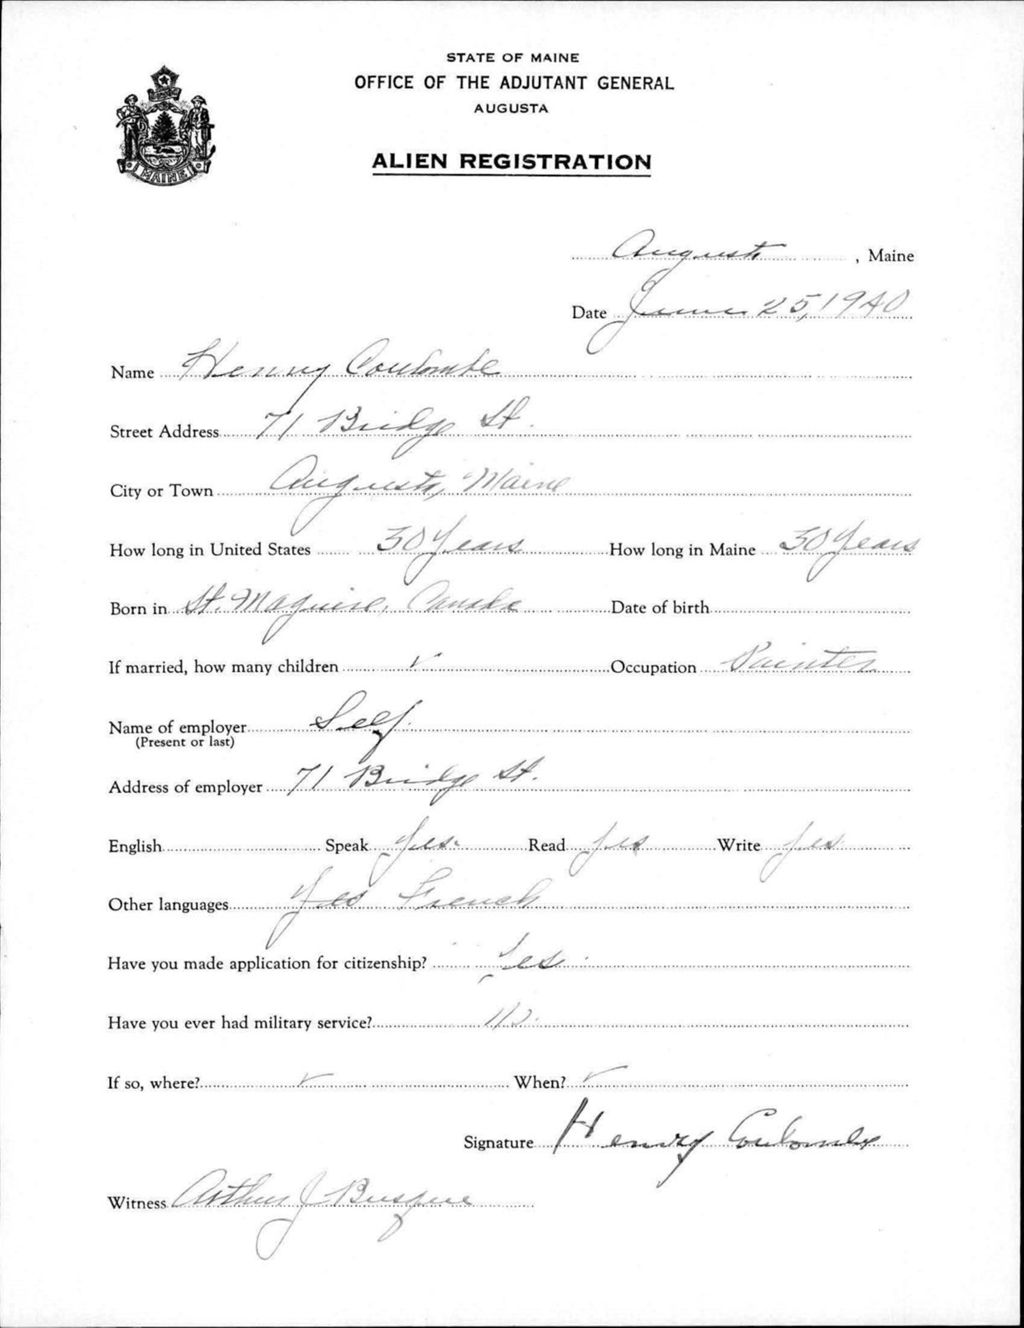 STATE OF MAINE
OFFICE OF THE ADJUTANT GENERAL
AUGUSTA
MAINE
ALIEN REGISTRATION
Augusta, Maine
Date June 25, 1940
Name Henry Coulombe
Street Address 71 Bridge St.
City or Town Augusta, Maine
How long in United States 30 Years How long in Maine 30 Years
Born in St. Maguire, Canada Date of birth
If married, how many children ✓ Occupation Painter
Name of employer Self
(Present or last)
Address of employer 71 Bridge St.
English Speak Yes. Read Yes Write Yes
Other languages Yes French
Have you made application for citizenship? Yes
Have you ever had military service? No.
If so, where? ✓ When? ✓
Signature Henry Coulombe
Witness Arthur J